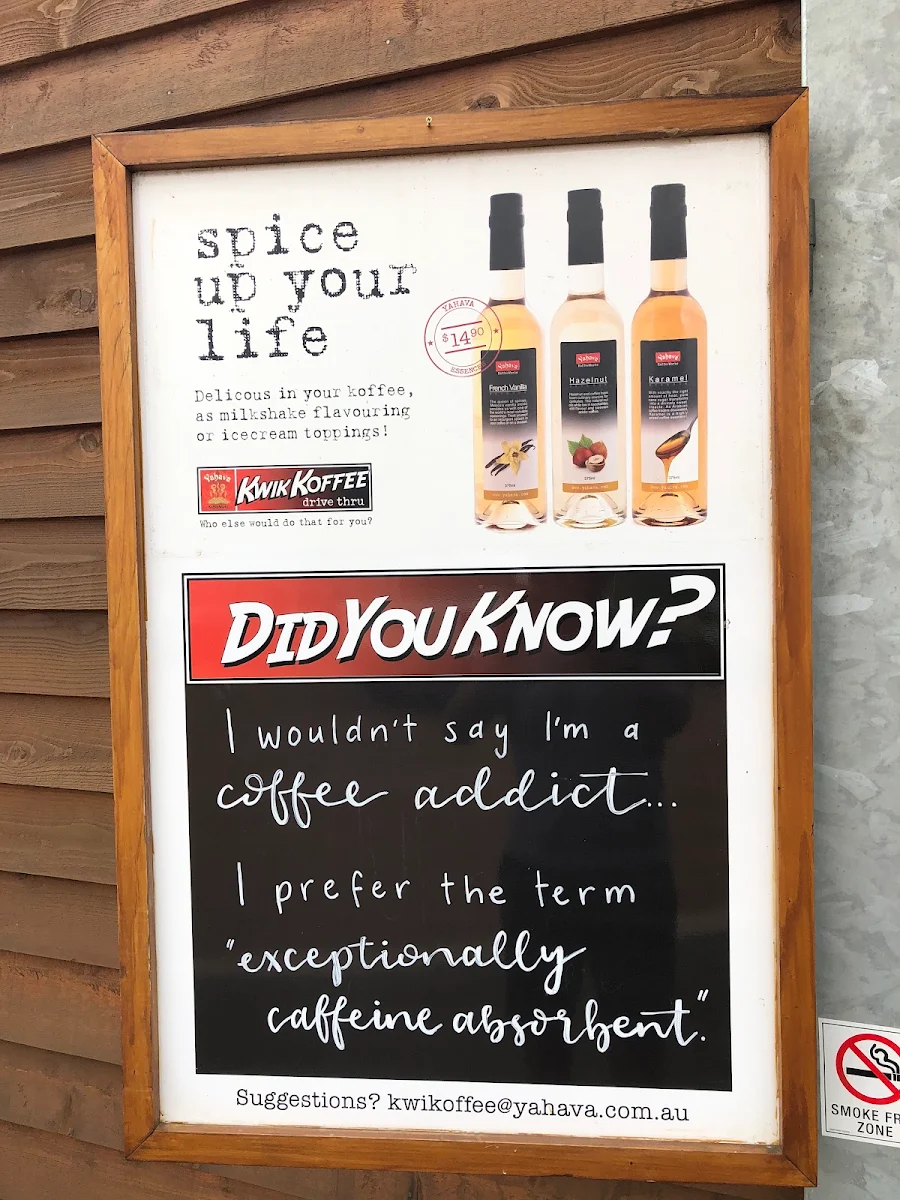 spice
up your
life
Delicous in your koffee,
as milkshake flavouring
or icecream toppings!
Yahava
KWIK KOFFEE
drive thru
Who else would do that for you?
YAHAVA
$14.90
ESSENCE
Yahava
French Vanilla
375ml
Yahava
Hazelnut
375ml
Yahava
Karamel
375ml
DID YOU KNOW?
I wouldn't say I'm a
coffee addict...
I prefer the term
"exceptionally
caffeine absorbent."
Suggestions? kwikoffee@yahava.com.au
SMOKE FR
ZONE